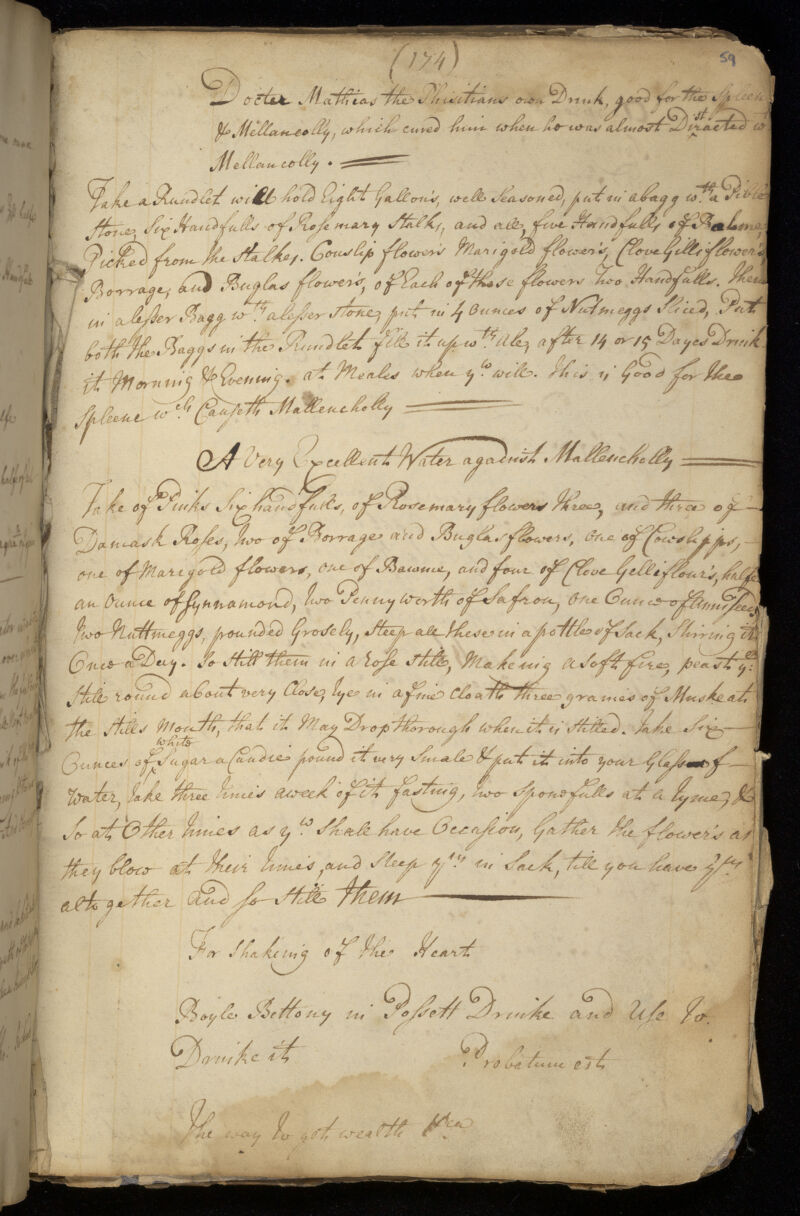 (174)
59
Docter Mathias the Phisitians own Drink, good for the Spleen
& Mellancolly, which cured him when he was almost Distracted wt
Mellancolly.
Take a Rundlet will hold Eight Gallon's, well Seasoned, put in a bagg wth a Pible
Stone, Six Handfulls of Rosemary Stalks, and all, five Handfulls of Balme,
Picked from the Stalkes. Couslip flower's Marigold flower's, Clove Gilliflower's
Borrage, and Buglas flower's, of Each of these flowers Two Handfulls. Then
in a lesser Bagg wth a lesser stone, put in 4 Ounces of Nutmeggs Sliced, Put
both the Baggs in the Rundlet fill it up wth Ale, after 14 or 15 Dayes Drink
it Morning & Evening. at Meales when yo will. This is Good for the
Spleene wch Causeth Mallencholly
A Very Excellent Water against Mallencholly
Take of Pinks Six handfulls, of Rosemary flowers three, and three of
Damask Roses, two of Borrage and Buglas flowers, one of Cowslipps,
one of Marigold flowers, one of Bawme, and four of Clove Gelliflour's, halfe
an Ounce of Synnamond, two Penny worth of Safron, One Ounce of Anniseed,
two Nuttmeggs, pounded Grosely, Steep all these in a pottle of Sack, Stirring it
Once a Day. So Still them in a Rose Still, Makeing a Soft fire, peast ye
Still round about very Close, tye in a fine Cloath three graines of Muske at
the Stills Mouth, that it May Drop thorough when it is Stilled. Take Six
Ounces of white Sugar a Candie pound it very Smale & put it into your Glass of
Water, Take three times a week of it fasting, two Sponofulls at a tyme, &
So at Other times as yo Shall have Occasion, Gather the flower's as
they blow at their times, and Steep ym in Sack, till you have ym
altogether and so Still them
For Shakeing of the Heart
Boyle Bettony in Possett Drinke and Use to
Drinke it Probatum est
The way to get wealth